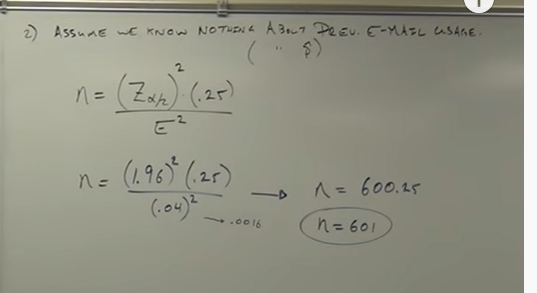 2) ASSUME WE KNOW NOTHING ABOUT PREV. E-MAIL USAGE.
( " p̂ )
n = (Zα/2)² · (.25) / E²
n = (1.96)² (.25) / (.04)² → n = 600.25
→ .0016
n = 601